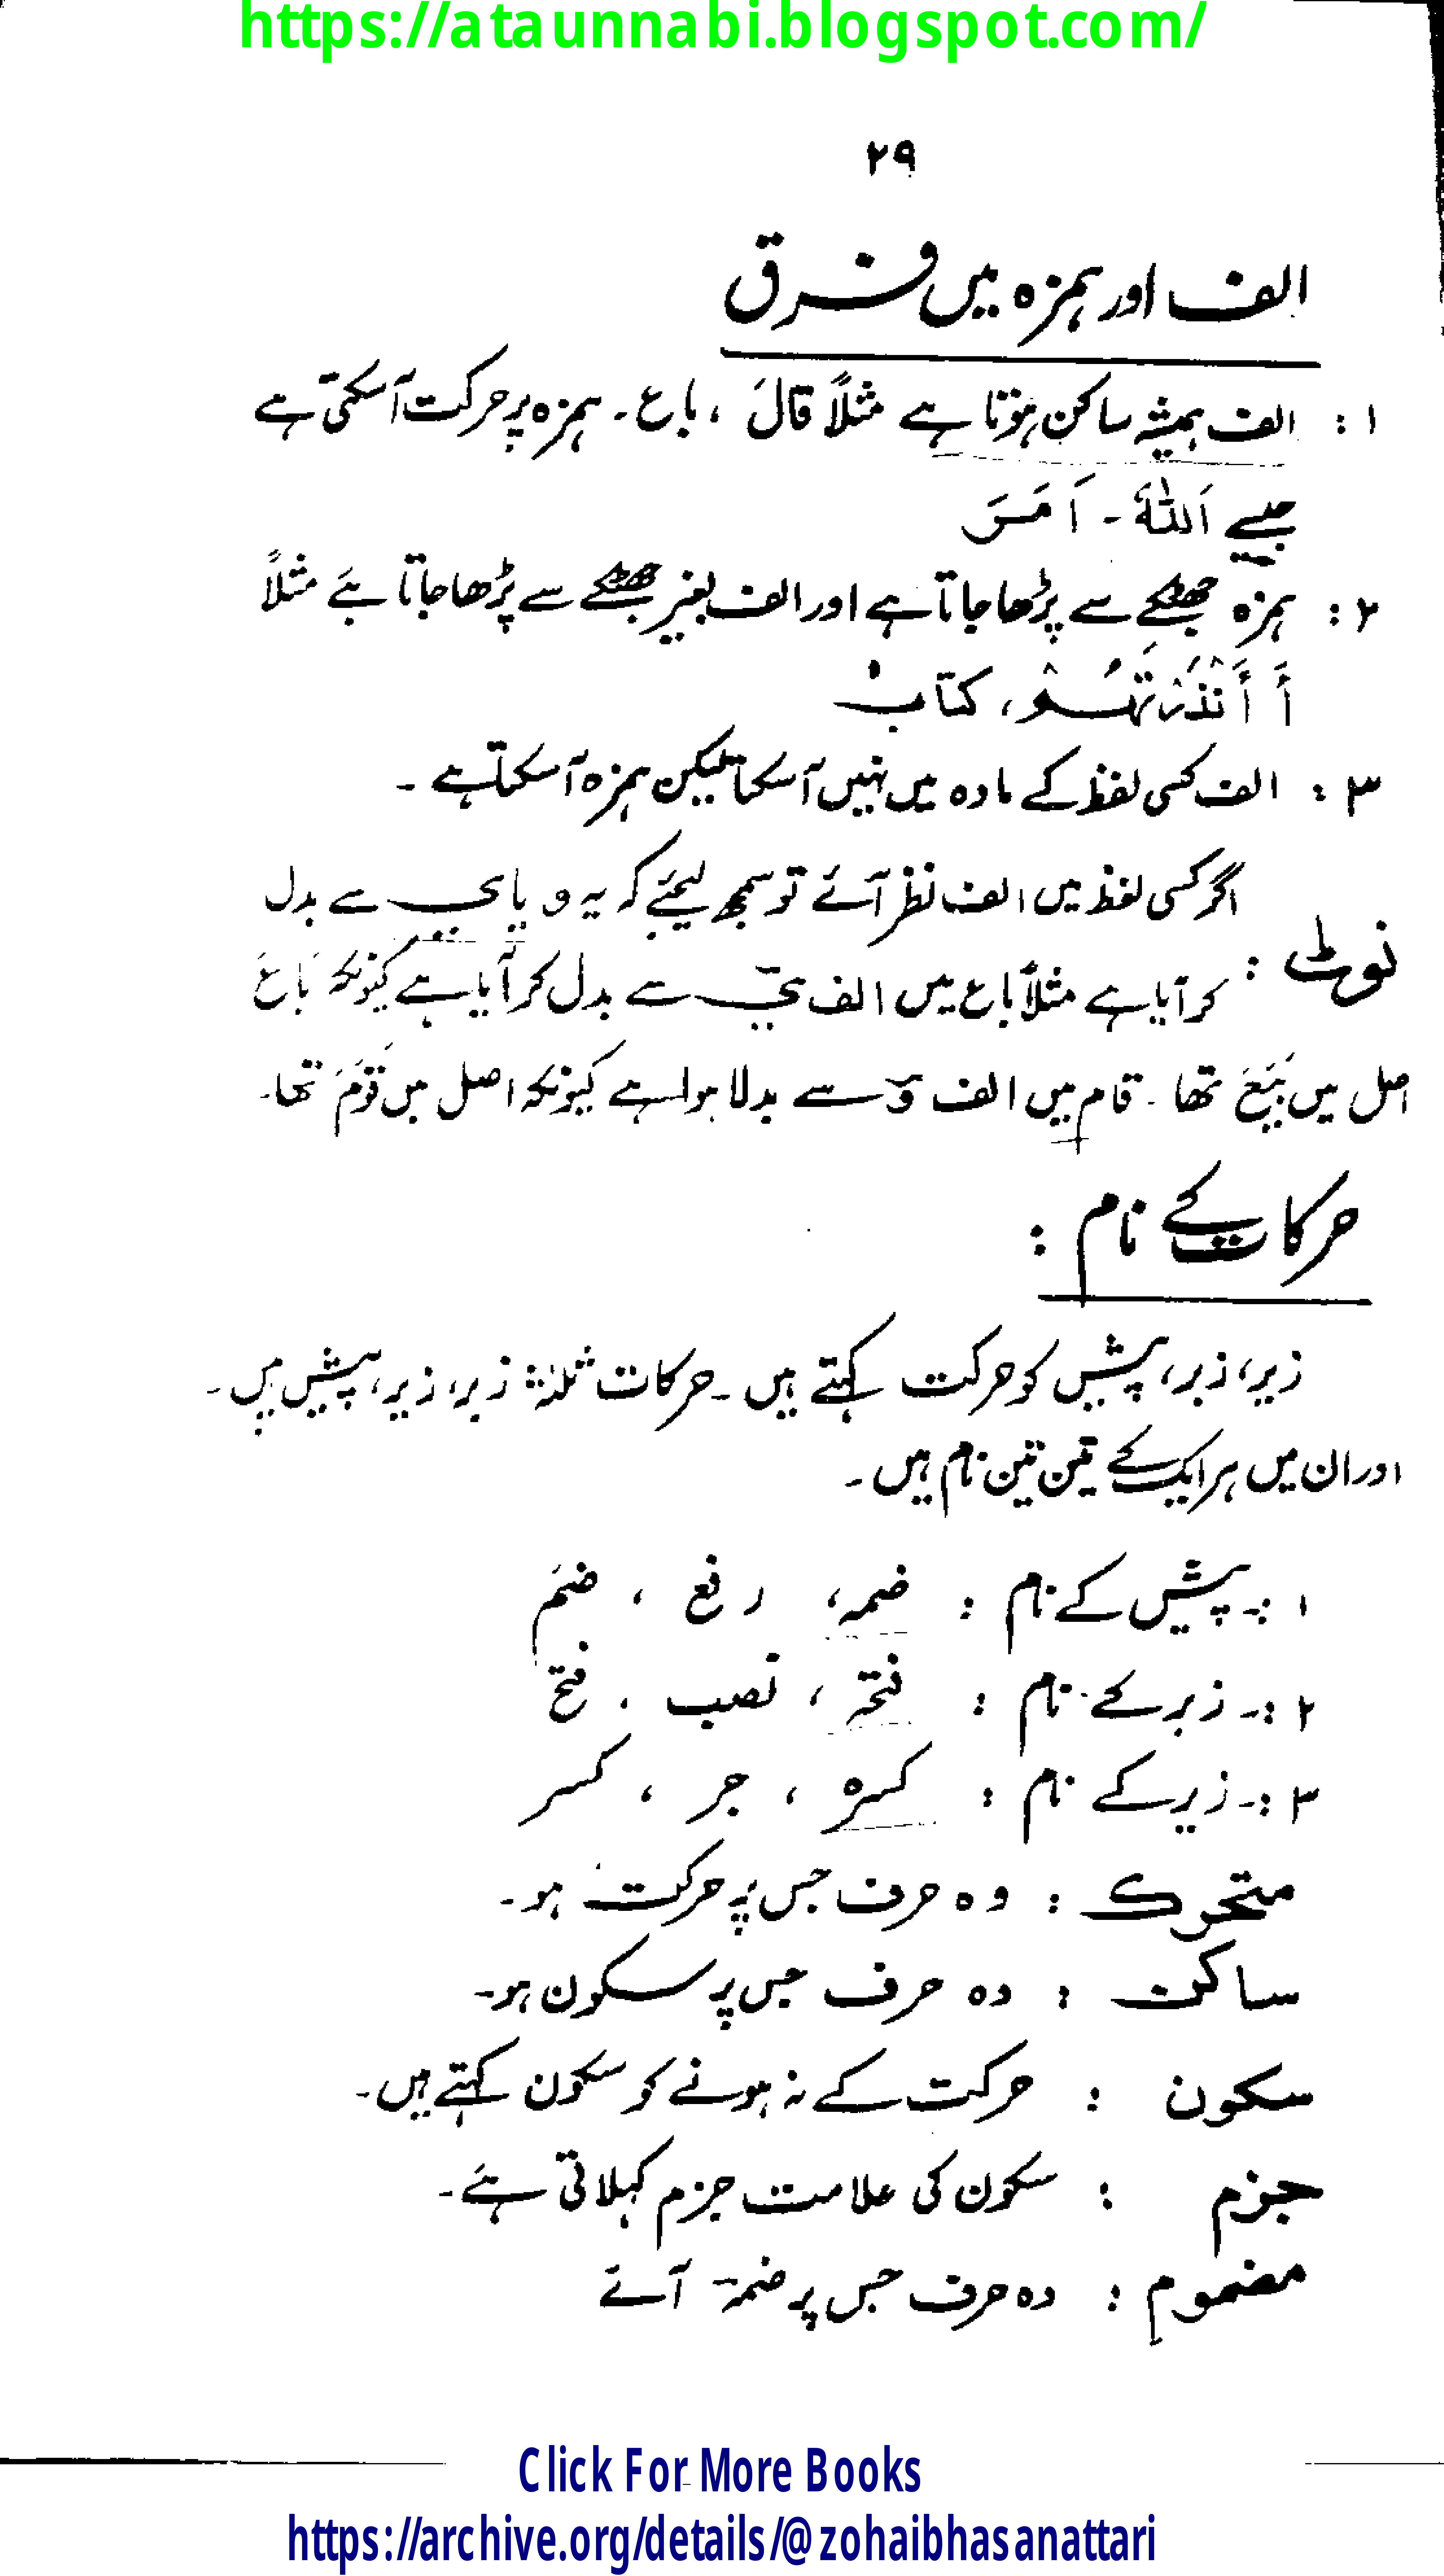 https://ataunnabi.blogspot.com/
۲۹
الف اور ہمزہ میں فرق
۱ : الف ہمیشہ ساکن ہوتا ہے مثلاً قَالَ ، باع ۔ ہمزہ پر حرکت آ سکتی ہے
جیسے اَللّٰهُ ۔ اَمَسَ
۲ : ہمزہ جھٹکے سے پڑھا جاتا ہے اور الف بغیر جھٹکے سے پڑھا جاتا ہے مثلاً
أَ أَنْذَرْتَهُمْ ، کتابْ
۳ : الف کسی لفظ کے مادہ میں نہیں آ سکتا لیکن ہمزہ آ سکتا ہے ۔
اگر کسی لفظ میں الف نظر آئے تو سمجھ لیجئے کہ یہ و یا ی سے بدل
نوٹ : کر آیا ہے مثلاً باع میں الف ی سے بدل کر آیا ہے کیونکہ بَاعَ
اصل میں بَیَعَ تھا ۔ قام میں الف و سے بدلا ہوا ہے کیونکہ اصل میں قَوَمَ تھا۔
حرکات کے نام :
زیر، زبر، پیش کو حرکت کہتے ہیں ۔ حرکات ثلثہ زبر، زیر، پیش ہیں ۔
اور ان میں ہر ایک کے تین تین نام ہیں ۔
۱ :۔ پیش کے نام : ضمہ ، رفع ، ضَم
۲ :۔ زبر کے نام : فتحہ ، نصب ، فتح
۳ :۔ زیر کے نام : کسرہ ، جر ، کسر
متحرک : وہ حرف جس پہ حرکت ہو ۔
ساکن : وہ حرف جس پر سکون ہو۔
سکون : حرکت کے نہ ہونے کو سکون کہتے ہیں ۔
جزم : سکون کی علامت جزم کہلاتی ہے ۔
مضموم : وہ حرف جس پر ضمہ آئے
Click For More Books
https://archive.org/details/@zohaibhasanattari